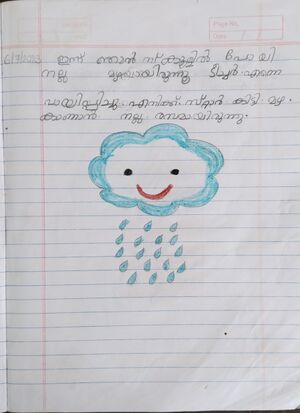 Page No.
Date
6/7/2023 ഇന്ന് ഞാൻ സ്കൂളിൽ പോയി
നല്ല മഴയായിരുന്നു ടീച്ചർ എന്നെ
പഠിപ്പിച്ചു. എനിക്ക് സ്റ്റാർ കിട്ടി മഴ
കാണാൻ നല്ല രസമായിരുന്നു.